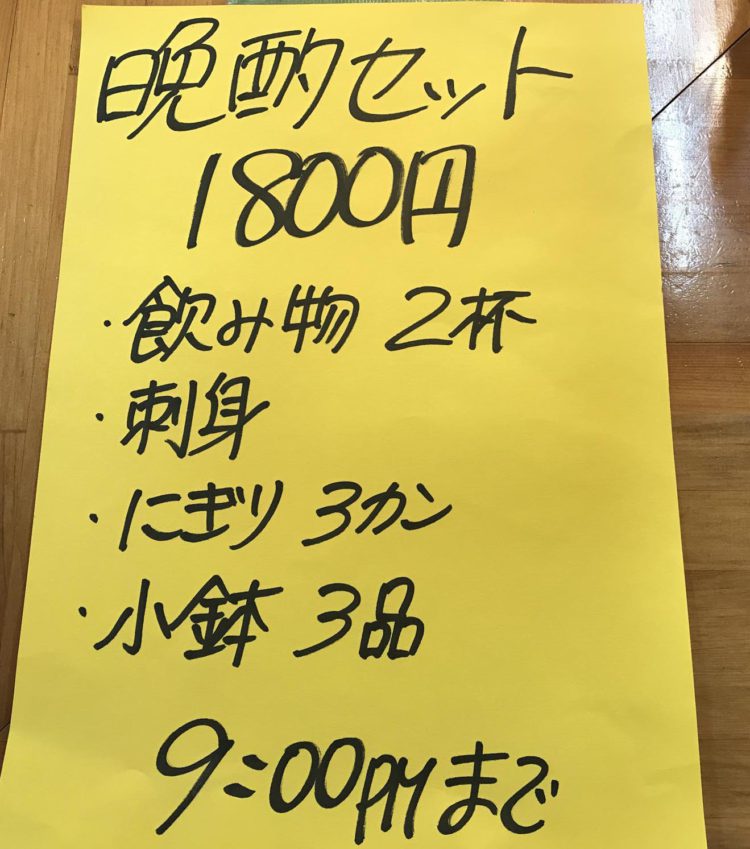 晩酌セット
1800円
・飲み物 2杯
・刺身
・にぎり 3カン
・小鉢 3品
9:00PMまで